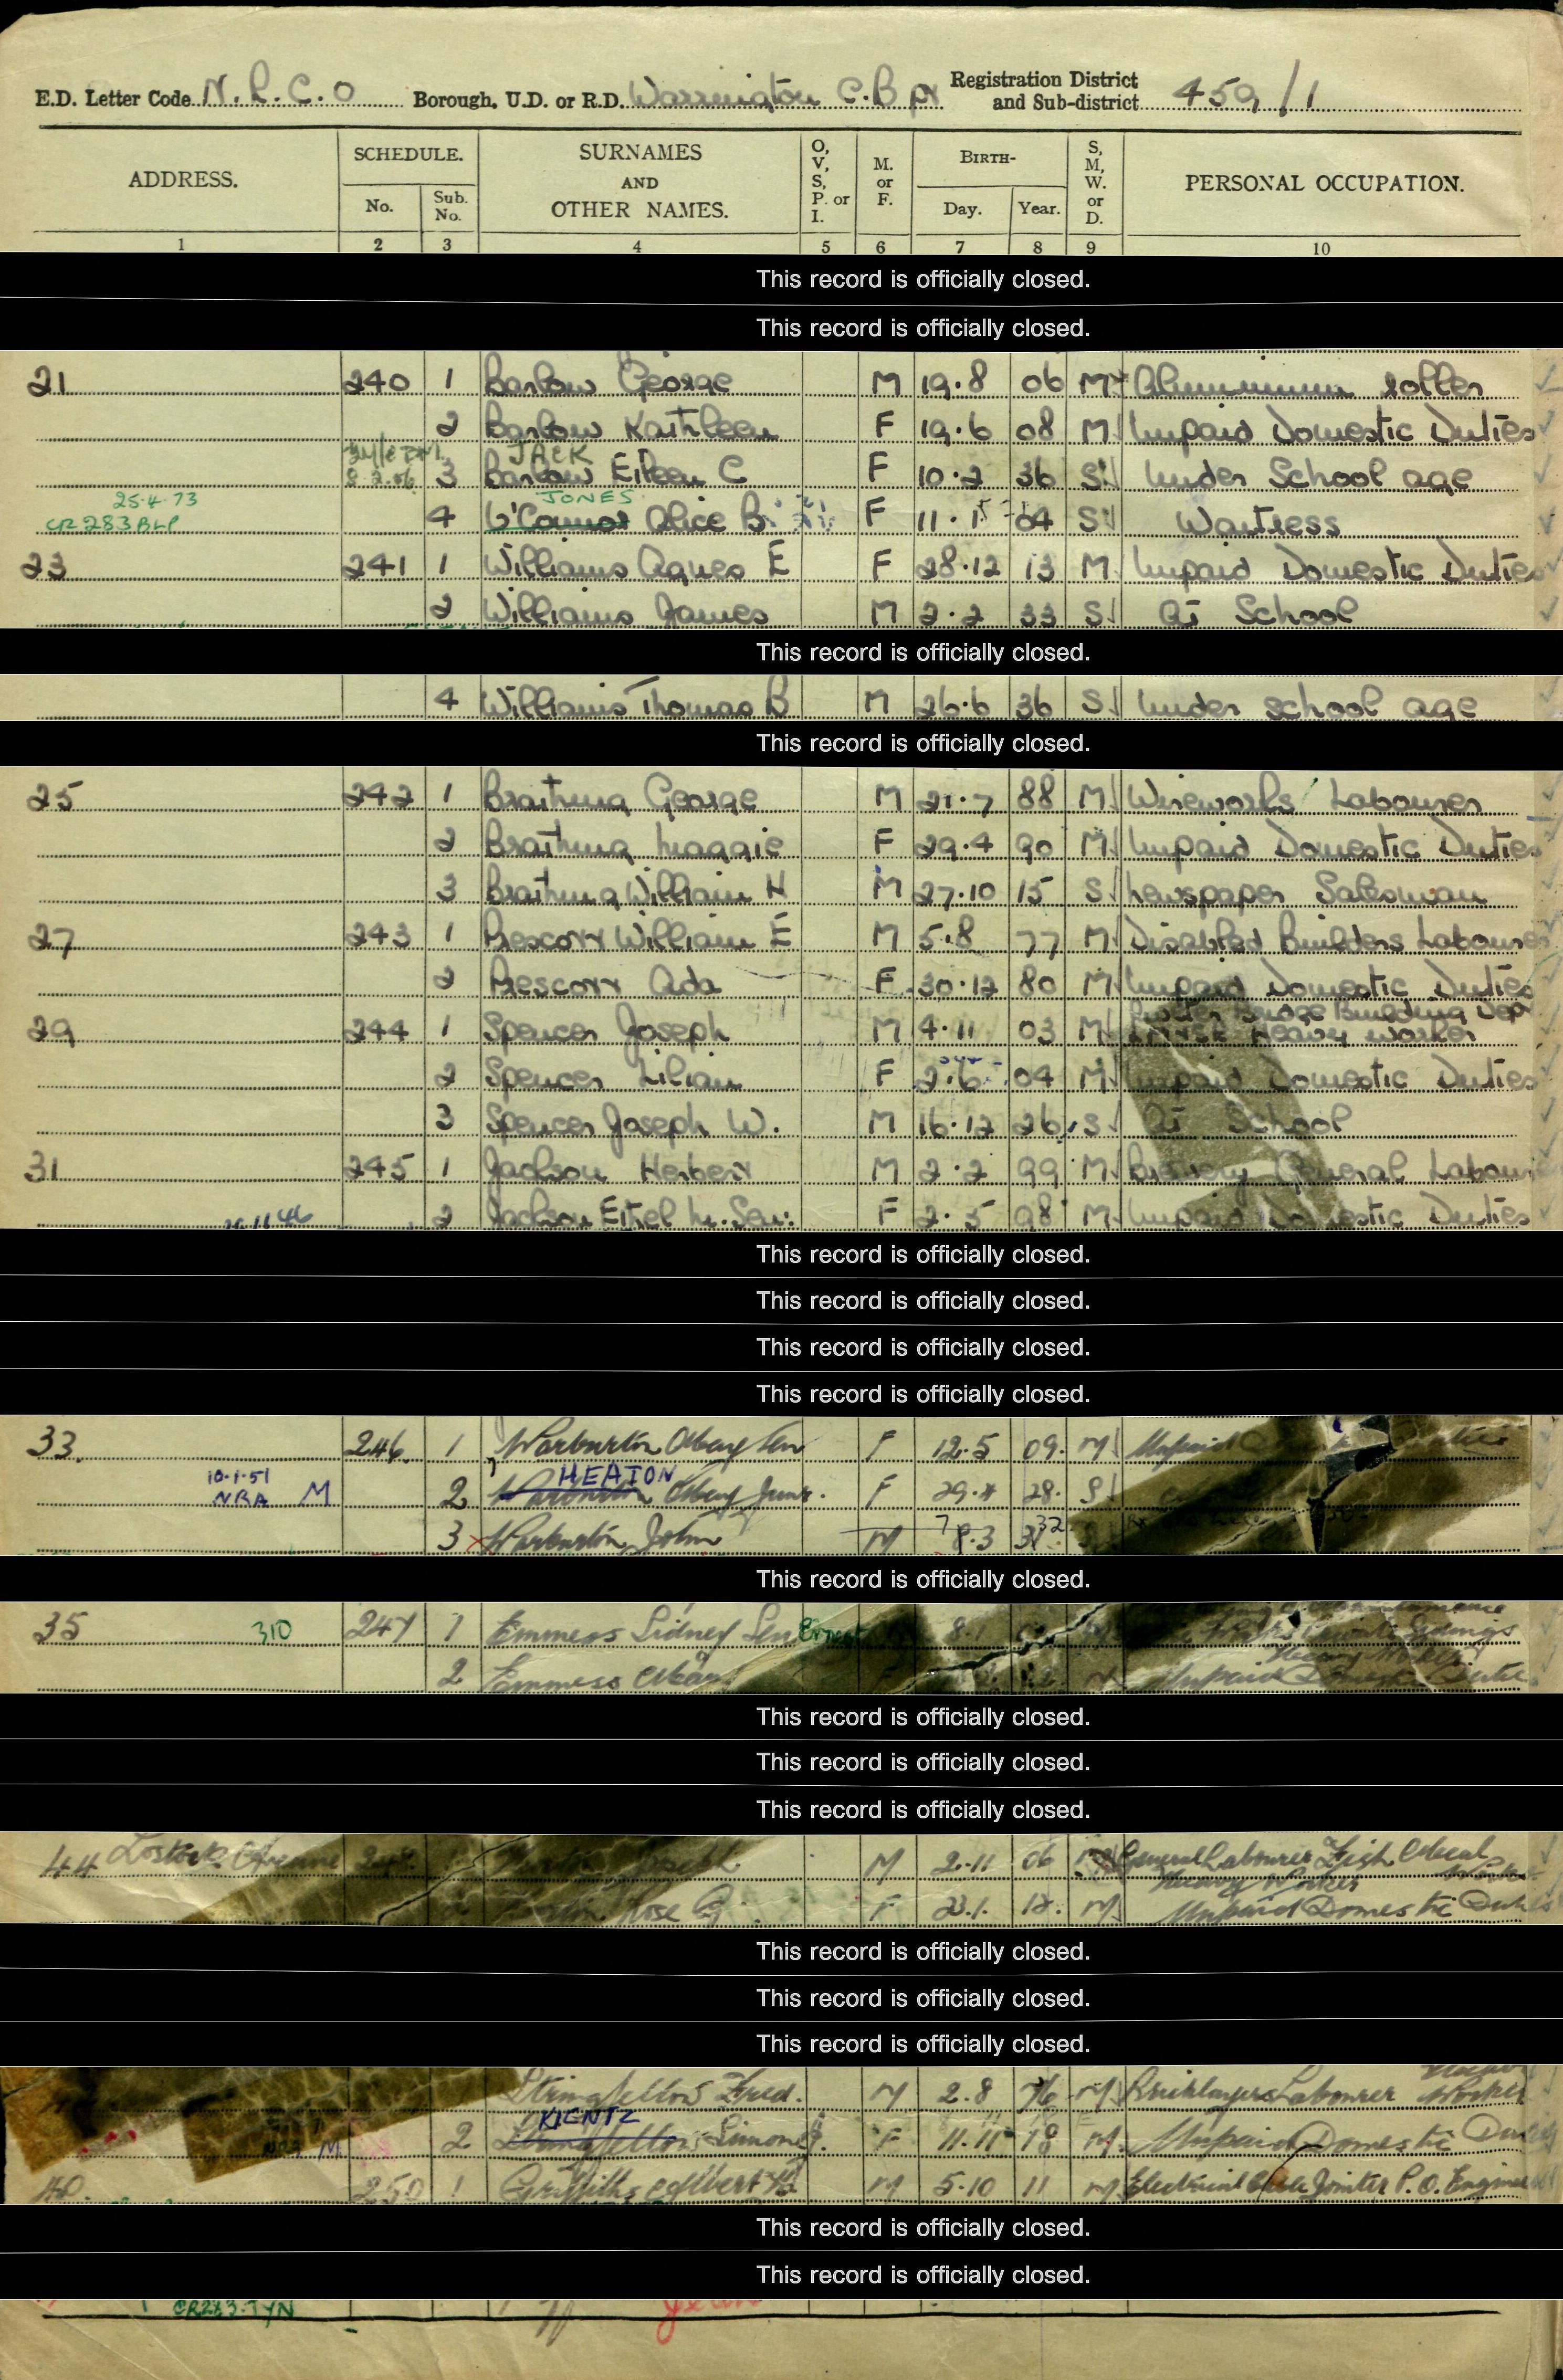 E.D. Letter Code N.L.C.O Borough, U.D. or R.D. Warrington C.B. Registration District and Sub-district 459/1
ADDRESS. SCHEDULE. No. Sub. No. SURNAMES AND OTHER NAMES. O, V, S, P. or I. M. or F. BIRTH- Day. Year. S, M, W. or D. PERSONAL OCCUPATION.
1 2 3 4 5 6 7 8 9 10
This record is officially closed.
This record is officially closed.
21 240 1 Barlow George M 19.8 06 M Aluminium roller
2 Barlow Kathleen F 19.6 08 M Unpaid Domestic Duties
JACK
8.2.56 3 Barlow Eileen C F 10.2 36 S Under School age
25.4.73 JONES
CR283 BLP 4 O'Connor Alice B F 11.1 04 S Waitress
23 241 1 Williams Agnes E F 28.12 13 M Unpaid Domestic Duties
2 Williams James M 2.2 33 S At School
This record is officially closed.
4 Williams Thomas B M 26.6 36 S Under school age
This record is officially closed.
25 242 1 George M 21.7 88 M Wireworks Labourer
2 Maggie F 29.4 90 M Unpaid Domestic Duties
3 William H M 27.10 15 S Newspaper Salesman
27 243 1 Prescott William E M 5.8 77 M Disabled Builders Labourer
2 Prescott Ada F 30.12 80 M Unpaid Domestic Duties
29 244 1 Spencer Joseph M 4.11 03 M Bridge Building Dept Heavy Worker
2 Spencer Lilian F 2.6 04 M Unpaid Domestic Duties
3 Spencer Joseph W. M 16.12 26 S At School
31 245 1 Jackson Herbert M 2.2 99 M Brewery General Labourer
2 Jackson Ethel M. Sen: F 2.5 98 M Unpaid Domestic Duties
This record is officially closed.
This record is officially closed.
This record is officially closed.
This record is officially closed.
33. 246 1 Warburton Mary Sen F 12.5 09. M Unpaid
10.1.51 HEATON
NRA M 2 Warburton Mary Junr. F 29. 28. S
3 Warburton John M 7 8.3 31 32
This record is officially closed.
35 310 247 1 Emmess Sidney Sen Ernest 8.1 Sidings
Heavy Worker
2 Emmess Mary Unpaid Domestic Duties
This record is officially closed.
This record is officially closed.
This record is officially closed.
44 Lostock Avenue M 2.11 06 General Labourer
Heavy Worker
Rose F 23.1. 12. M Unpaid Domestic Duties
This record is officially closed.
This record is officially closed.
This record is officially closed.
Stringfellow Fred. M 2.8 76 M Bricklayers Labourer Heavy Worker
KIENTZ
M 2 Stringfellow Simone J. F 11.11 18 M Unpaid Domestic Duties
40. 250 1 Griffiths Albert M 5.10 11 M Electrical Cable Jointer P.O. Engineer
This record is officially closed.
This record is officially closed.
CR283.TYN